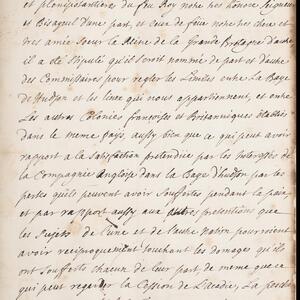 et plenipotentiaire du feu Roy notre tres honoré Seigneur
et Bisayeul d'une part, et ceux de feüe notre tres chere et
tres amée Soeur la Reine de la Grande Bretagne d'autre
il a été stipulé qu'il seroit nommé de part et d'autre
des Commissaires pour regler les Limites entre La Baye
de Hudson et les lieux qui nous appartiennent, et entre
Les autres Colonies françoises et Britanniques établies
dans le même païs, aussy bien que ce qui peut avoir
raport a la Satisfaction pretendüe par les Interessés de
la Compagnie Angloise dans la Baye d'hudson par les
pertes qu'ils peuvent avoir Souffertes pendant la paix
et par rapport aussy aux autres pretentions que
les Sujets de l'une et de l'autre Nation pourroient
avoir reciproquement touchant les domages qu'ils
ont Soufferts chacun de leur part de meme que ce
qui peut regarder la Cession de l'acadie, La possession